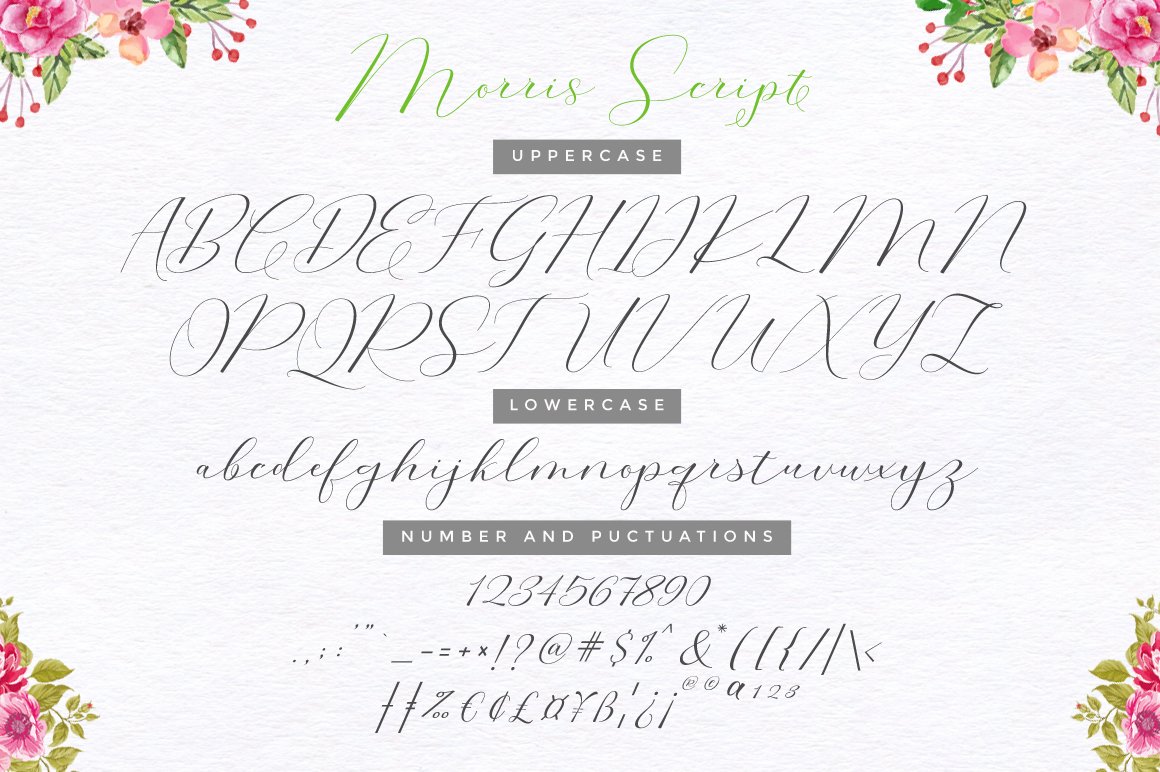 Morris Script
UPPERCASE
ABCDEFGHIJKLMN
OPQRSTUVWXYZ
LOWERCASE
abcdefghijklmnopqrstuvwxyz
NUMBER AND PUCTUATIONS
1234567890
.,;:'"`_-=+×!?@#$%^&*([{/|\<
†‡‰€¢£¤¥ß¦¿¡®©ª123